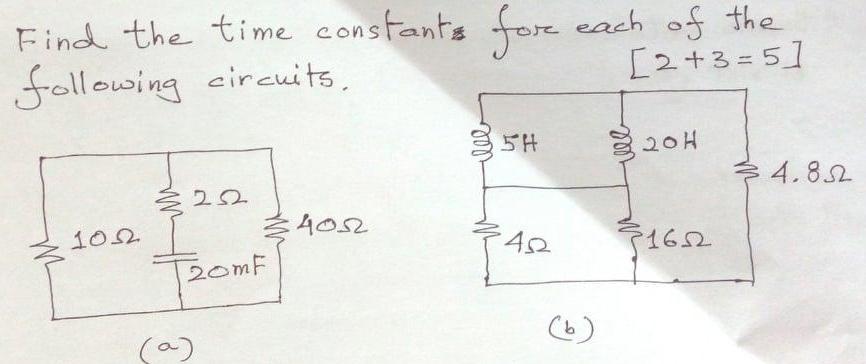 Find the time constants for each of the
[2+3=5]
following circuits.
5H
20H
4.8Ω
10Ω
2Ω
40Ω
20mF
4Ω
16Ω
(a)
(b)